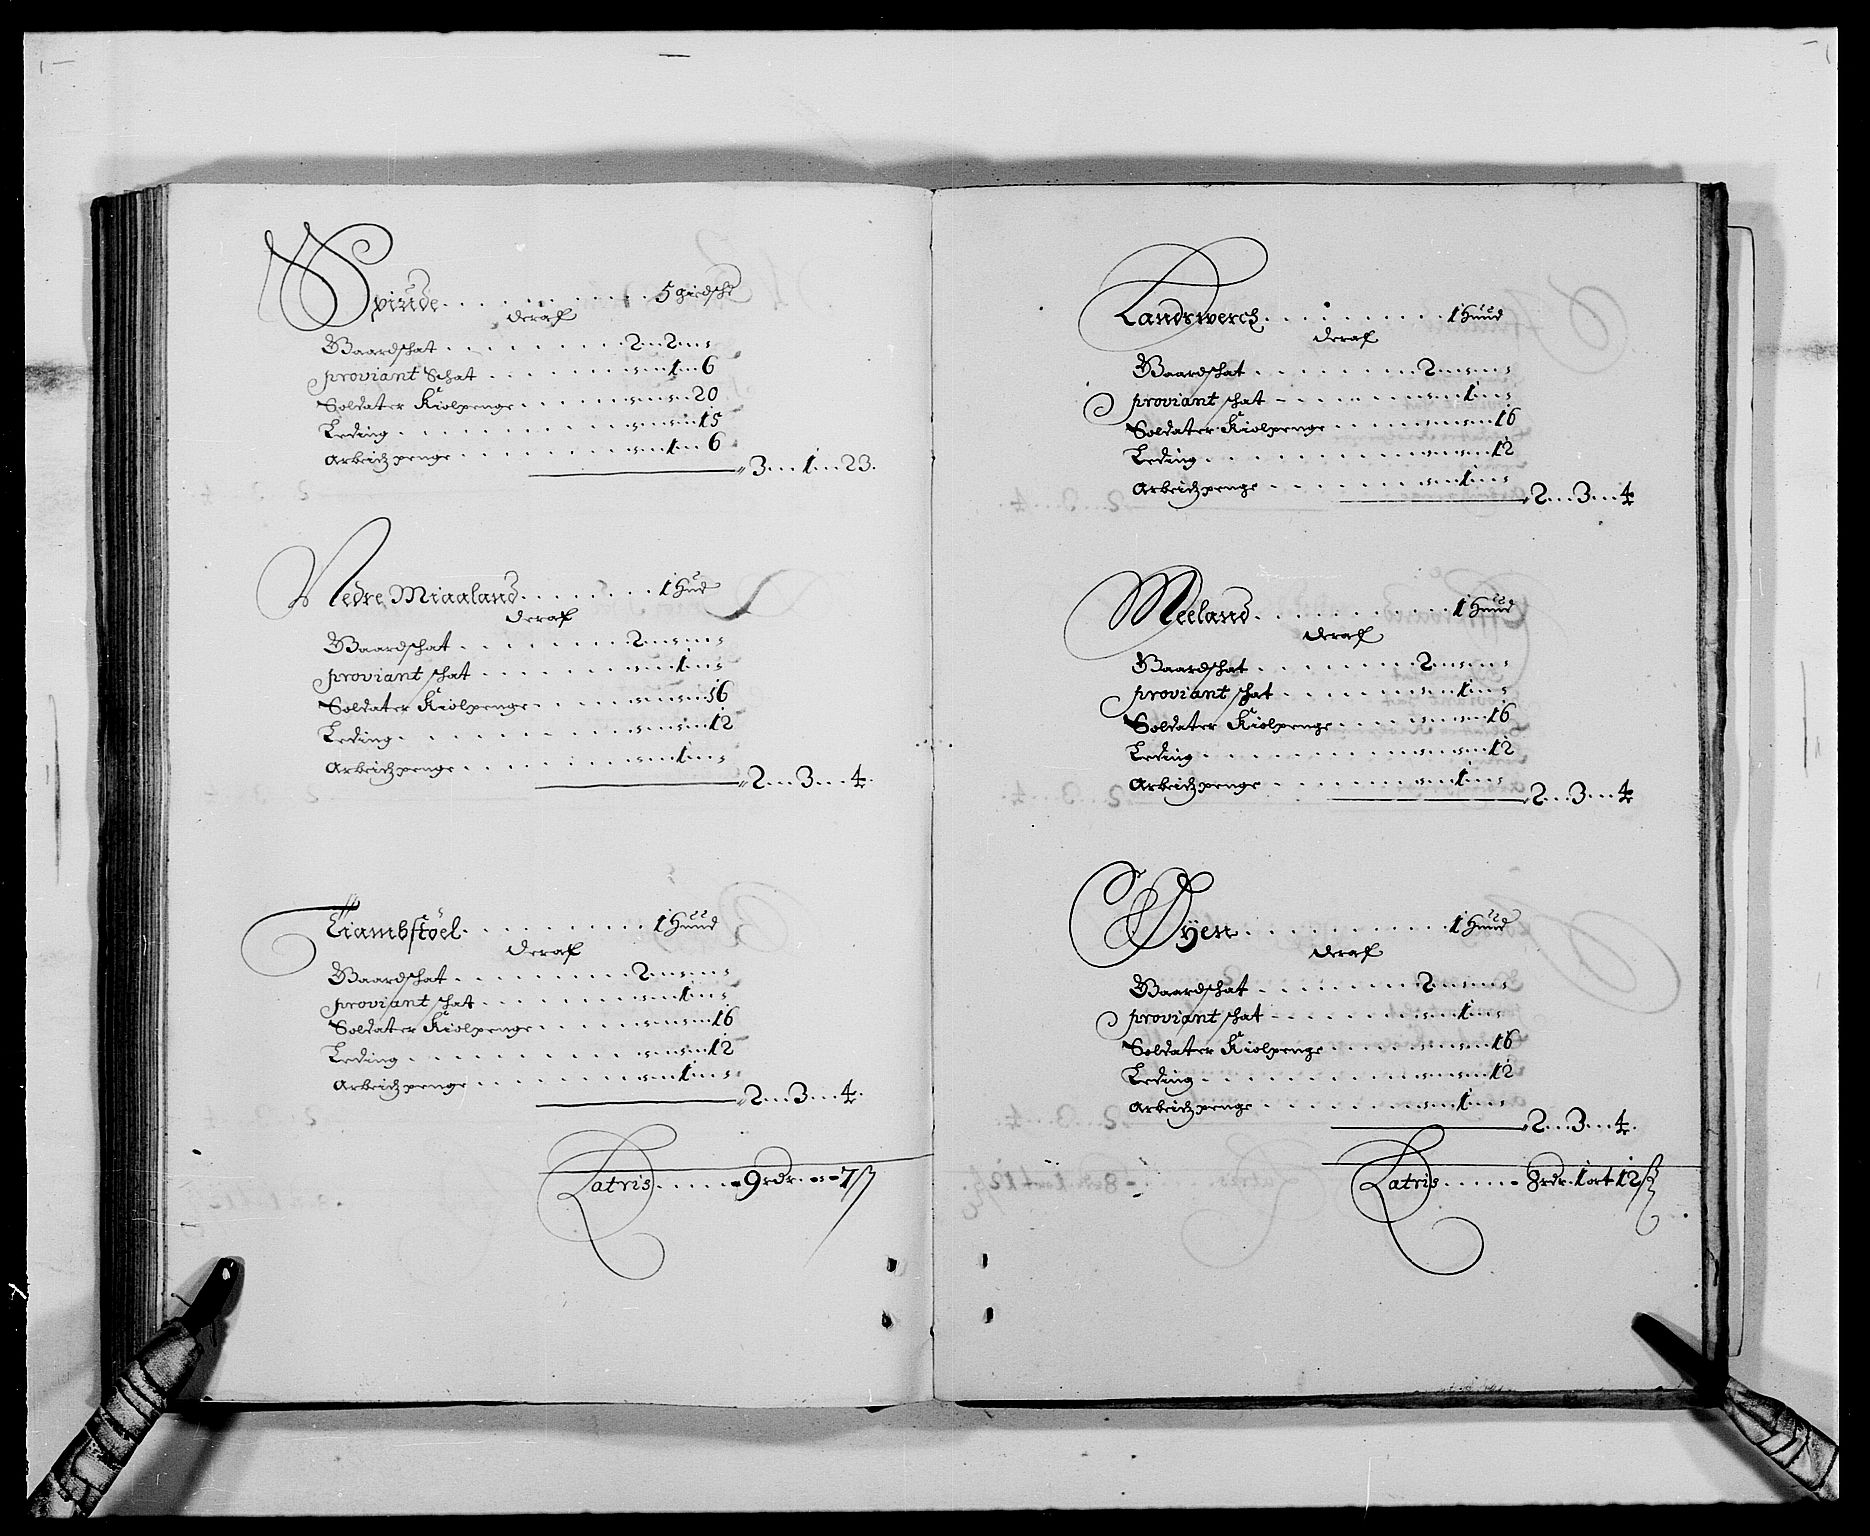 Spinde . . . . . . . . . . . 5 giedsche
deraf
Gaardschat . . . . . . . . . 2 .. 2 .. "
proviant Schat . . . . . . . " .. 1 .. 6
Soldater Kiolpenge . . . . . . " .. " .. 20
Leding . . . . . . . . . . " .. " .. 15
Arbeidzpenge . . . . . . . . " .. 1 .. 6
" 3 .. 1 .. 23.
Nedre Miaaland . . . . . . . 1 Hud
deraf
Gaardschat . . . . . . . . 2 .. " .. "
proviant schat . . . . . . . " .. 1 .. "
Soldater Kiolpenge . . . . . " .. " .. 16
Leding . . . . . . . . . . " .. " .. 12
Arbeidzpenge . . . . . . . . " .. 1 .. "
" 2 ... 3 ... 4.
Tiambstöel . . . . . . . . . 1 Huud
deraf
Gaardschat . . . . . . . . . 2 .. " .. "
proviant schat . . . . . . . " .. 1 .. "
Soldater Kiolpenge . . . . . " .. " .. 16
Leding . . . . . . . . . . " .. " .. 12
Arbeidzpenge . . . . . . . . " .. 1 .. "
" 2 ... 3 ... 4.
Latris . . . . . 9 rdr. - " - 7 ß
Landswerch . . . . . . . . . 1 Huud
deraf
Gaardschat . . . . . . . . . 2 .. " .. "
proviant schat . . . . . . . " .. 1 .. "
Soldater Kiolpenge . . . . . . " .. " .. 16
Leding . . . . . . . . . . " .. " .. 12
Arbeidzpenge . . . . . . . . " .. 1 .. "
" 2 ... 3 ... 4
Meeland . . . . . . . . . . 1 Huud
deraf
Gaardschat . . . . . . . . . 2 .. " .. "
proviant schat . . . . . . . " .. 1 .. "
Soldater Kiolpenge . . . . . " .. " .. 16
Leding . . . . . . . . . . " .. " .. 12
Arbeidzpenge . . . . . . . . " .. 1 .. "
" 2 ... 3 ... 4
Øyen . . . . . . . . . . . 1 Huud
deraf
Gaardschat . . . . . . . . . 2 .. " .. "
proviant schat . . . . . . . " .. 1 .. "
Soldater Kiolpenge . . . . . . " .. " .. 16
Leding . . . . . . . . . . " .. " .. 12
Arbeidzpenge . . . . . . . . " .. 1 .. "
" 2 ... 3 ... 4.
Latris . . . . . 8 rdr. 1 ort 12 ß